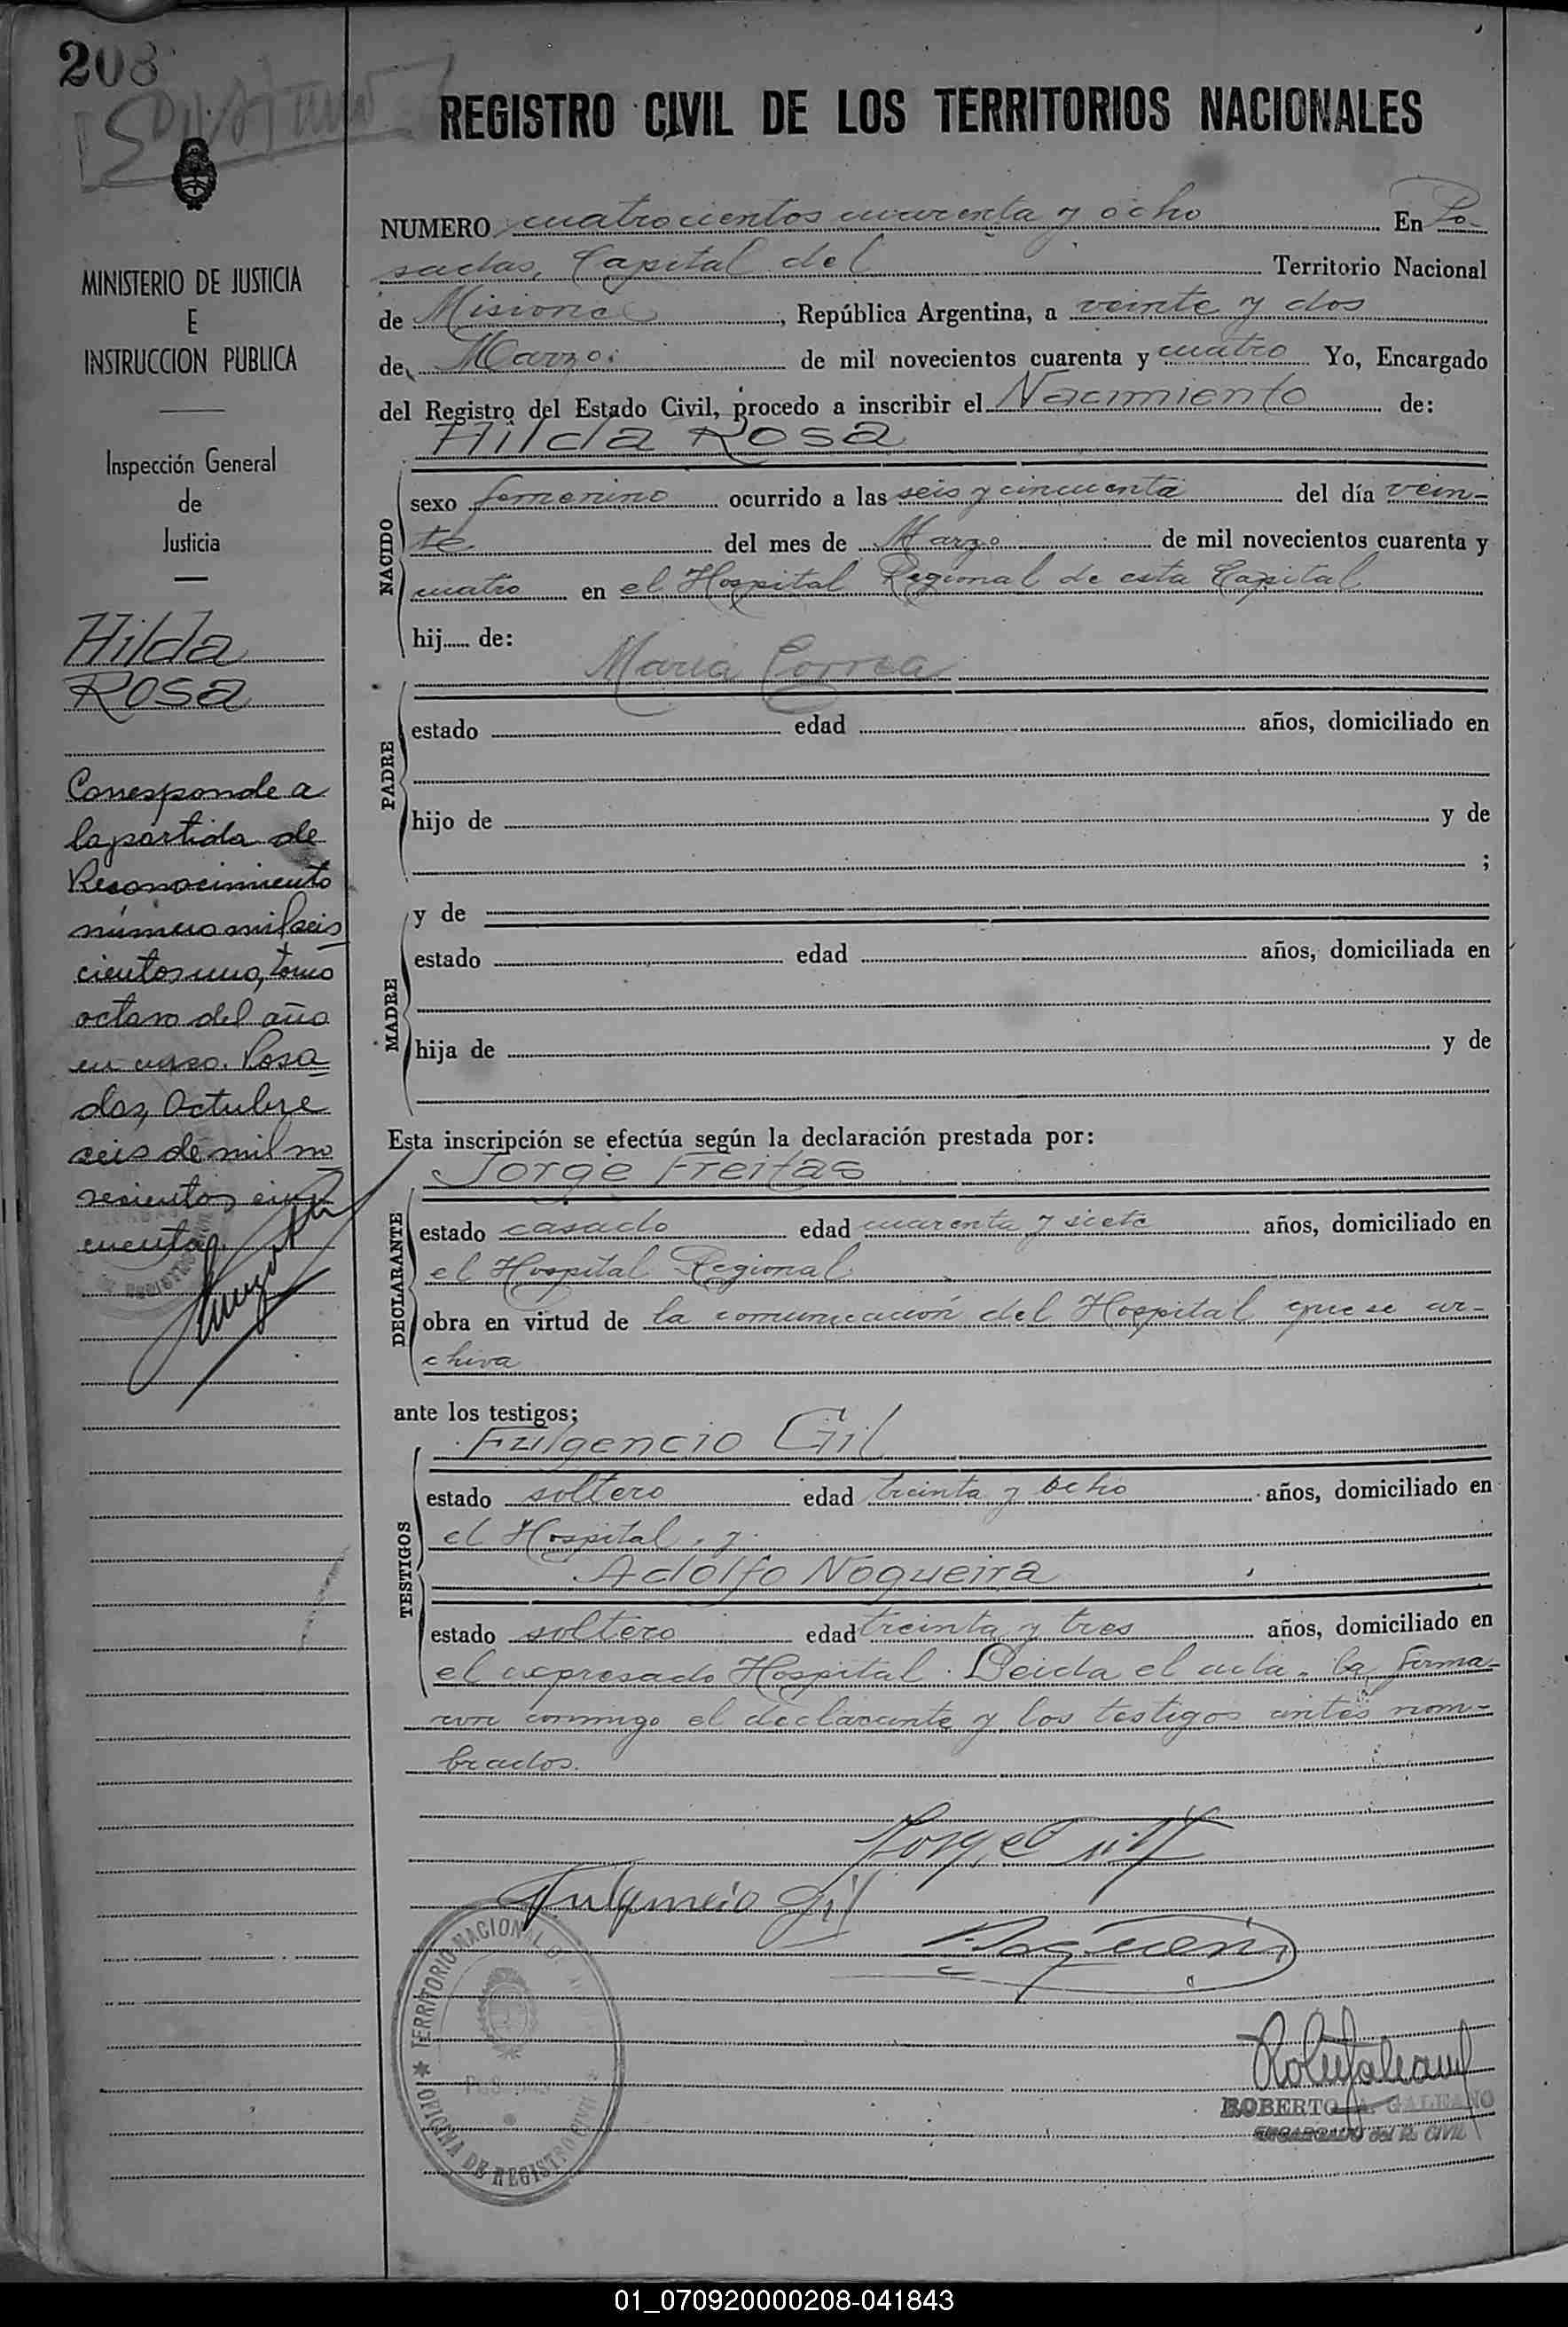 208
REGISTRO CIVIL DE LOS TERRITORIOS NACIONALES
MINISTERIO DE JUSTICIA
E
INSTRUCCION PUBLICA
Inspección General
de
Justicia
Hilda
Rosa
Corresponde a
la partida de
Reconocimiento
número mil seis
cientos uno, tomo
octavo del año
en curso. Posa
das, Octubre
seis de mil no
vecientos cin
cuenta.
NUMERO cuatrocientos cuarenta y ocho En Po-
sadas, Capital del Territorio Nacional
de Misiones, República Argentina, a veinte y dos
de Marzo de mil novecientos cuarenta y cuatro Yo, Encargado
del Registro del Estado Civil, procedo a inscribir el Nacimiento de:
Hilda Rosa
NACIDO
sexo femenino ocurrido a las seis y cincuenta del día vein-
te del mes de Marzo de mil novecientos cuarenta y
cuatro en el Hospital Regional de esta Capital
hij de:
María Correa
PADRE
estado edad años, domiciliado en
hijo de y de
;
MADRE
y de
estado edad años, domiciliada en
hija de y de
Esta inscripción se efectúa según la declaración prestada por:
Jorge Freitas
DECLARANTE
estado casado edad cuarenta y siete años, domiciliado en
el Hospital Regional
obra en virtud de la comunicación del Hospital que se ar-
chiva
ante los testigos;
Fulgencio Gil
TESTIGOS
estado soltero edad treinta y ocho años, domiciliado en
el Hospital, y
Adolfo Nogueira
estado soltero edad treinta y tres años, domiciliado en
el expresado Hospital. Leida el acta, la firma-
ron conmigo el declarante y los testigos antes nom-
brados.
Fulgencio Gil
TERRITORIO NACIONAL
OFICINA DE REGISTRO CIVIL
ROBERTO A. GALEANO
ENCARGADO del R. CIVIL
01_070920000208-041843